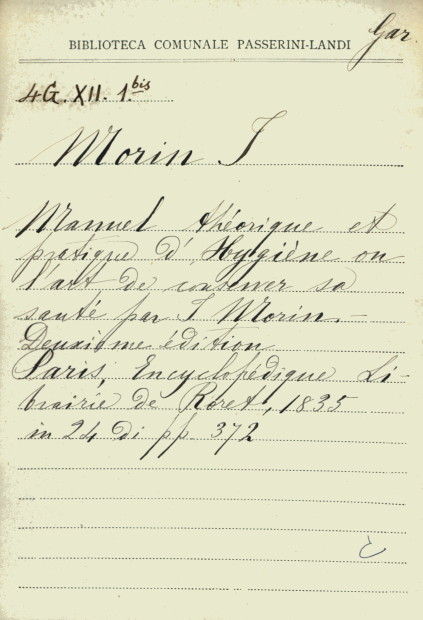 Gar
BIBLIOTECA COMUNALE PASSERINI-LANDI
4G. XII. 1.bis
Morin J
Manuel théorique et
pratique d'Hygiène ou
l'art de conserver sa
santé par J Morin. -
Deuxième édition
Paris, Encyclopédique Li-
brairie de Roret, 1835
in 24 di pp. 372